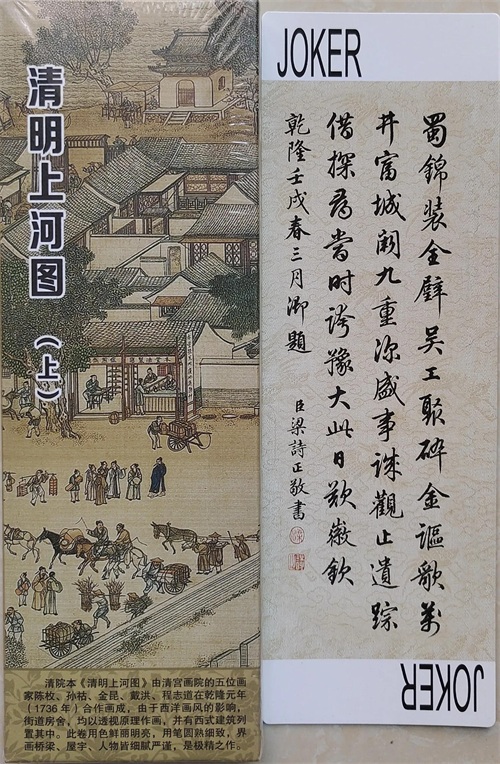 清明上河图
（上）
清院本《清明上河图》由清宫画院的五位画
家陈枚、孙祜、金昆、戴洪、程志道在乾隆元年
（1736年）合作画成，由于西洋画风的影响，
街道房舍，均以透视原理作画，并有西式建筑列
置其中。此卷用色鲜丽明亮，用笔圆熟细致，界
画桥梁、屋宇、人物皆细腻严谨，是极精之作。
JOKER
蜀錦裝全璧吴工聚碎金謳歌萬
井富城闕九重深盛事誠觀止遺踪
借探尋當時誇豫大此日歎徽欽
乾隆壬戌春三月御題
臣梁詩正敬書
JOKER